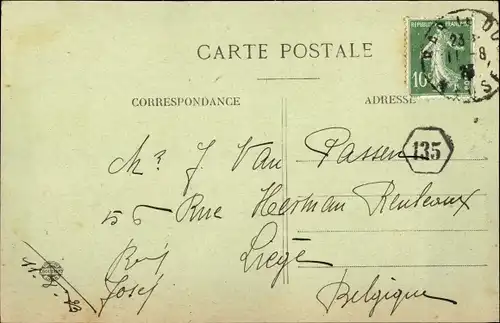 CARTE POSTALE
CORRESPONDANCE
ADRESSE
RÉPUBLIQUE FRANÇAISE
10
135
Mr J. Van Passen
56 Rue Herman Reuleaux
Liège
Belgique
Josef